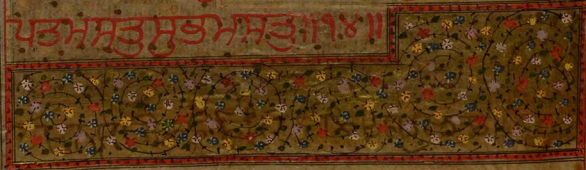 ਪਤਮਸਤੁਸੁਭਮਸਤੁ॥੧੪॥